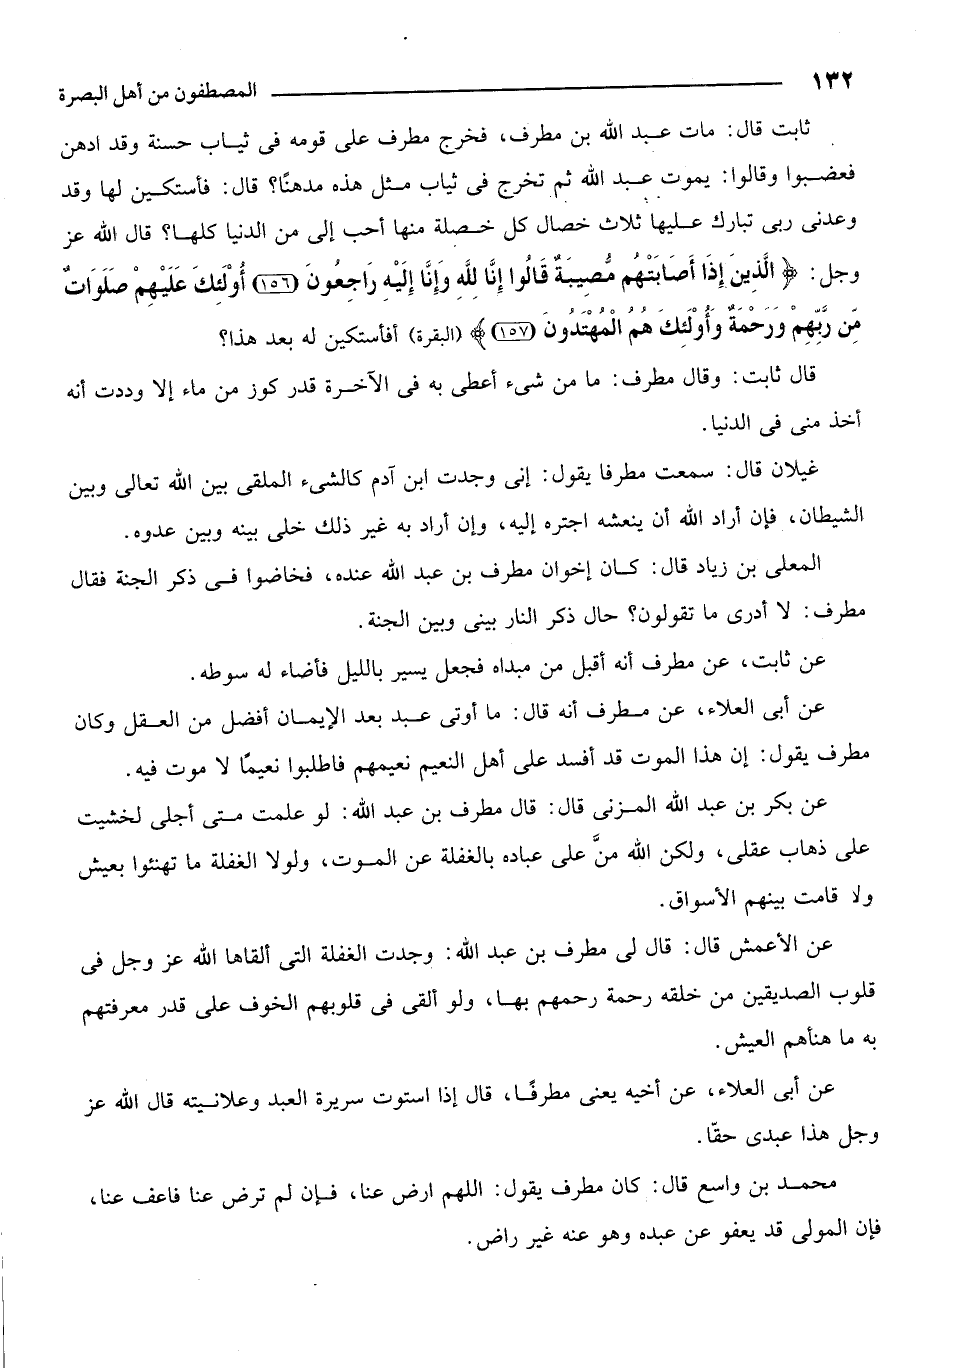 ١٣٢ المصطفون من أهل البصرة
ثابت قال: مات عبد الله بن مطرف، فخرج مطرف على قومه فى ثياب حسنة وقد ادهن
فغضبوا وقالوا: يموت عبد الله ثم تخرج فى ثياب مثل هذه مدهنًا؟ قال: فأستكين لها وقد
وعدنى ربى تبارك عليها ثلاث خصال كل خصلة منها أحب إلى من الدنيا كلها؟ قال الله عز
وجل: ﴿ الَّذِينَ إِذَا أَصَابَتْهُم مُّصِيبَةٌ قَالُوا إِنَّا لِلَّهِ وَإِنَّا إِلَيْهِ رَاجِعُونَ (١٥٦) أُوْلَئِكَ عَلَيْهِمْ صَلَوَاتٌ
مِّن رَّبِّهِمْ وَرَحْمَةٌ وَأُوْلَئِكَ هُمُ الْمُهْتَدُونَ (١٥٧) ﴾ (البقرة) أفأستكين له بعد هذا؟
قال ثابت: وقال مطرف: ما من شىء أعطى به فى الآخرة قدر كوز من ماء إلا وددت أنه
أخذ منى فى الدنيا.
غيلان قال: سمعت مطرفا يقول: إنى وجدت ابن آدم كالشىء الملقى بين الله تعالى وبين
الشيطان، فإن أراد الله أن ينعشه اجتره إليه، وإن أراد به غير ذلك خلى بينه وبين عدوه.
المعلى بن زياد قال: كان إخوان مطرف بن عبد الله عنده، فخاضوا فى ذكر الجنة فقال
مطرف: لا أدرى ما تقولون؟ حال ذكر النار بينى وبين الجنة.
عن ثابت، عن مطرف أنه أقبل من مبداه فجعل يسير بالليل فأضاء له سوطه.
عن أبى العلاء، عن مطرف أنه قال: ما أوتى عبد بعد الإيمان أفضل من العقل وكان
مطرف يقول: إن هذا الموت قد أفسد على أهل النعيم نعيمهم فاطلبوا نعيمًا لا موت فيه.
عن بكر بن عبد الله المزنى قال: قال مطرف بن عبد الله: لو علمت متى أجلى لخشيت
على ذهاب عقلى، ولكن الله منَّ على عباده بالغفلة عن الموت، ولولا الغفلة ما تهنئوا بعيش
ولا قامت بينهم الأسواق.
عن الأعمش قال: قال لى مطرف بن عبد الله: وجدت الغفلة التى ألقاها الله عز وجل فى
قلوب الصديقين من خلقه رحمة رحمهم بها، ولو ألقى فى قلوبهم الخوف على قدر معرفتهم
به ما هنأهم العيش.
عن أبى العلاء، عن أخيه يعنى مطرفًا، قال إذا استوت سريرة العبد وعلانيته قال الله عز
وجل هذا عبدى حقّا.
محمد بن واسع قال: كان مطرف يقول: اللهم ارض عنا، فإن لم ترض عنا فاعف عنا،
فإن المولى قد يعفو عن عبده وهو عنه غير راض.